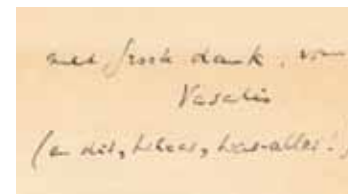 met grote dank, van
Vasalis
(en dit, helaas, was alles!)